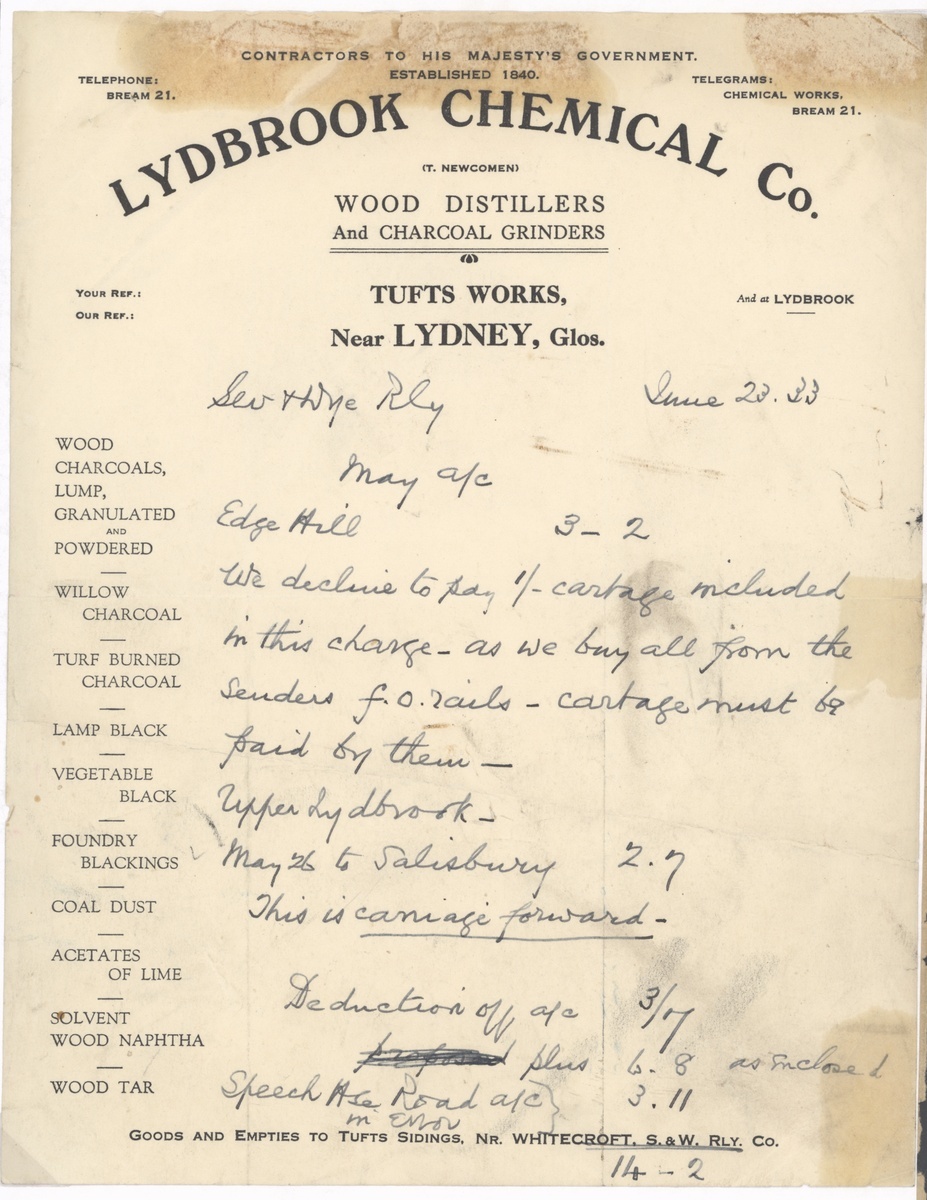 CONTRACTORS TO HIS MAJESTY'S GOVERNMENT.
ESTABLISHED 1840.
TELEPHONE:
BREAM 21.
TELEGRAMS:
CHEMICAL WORKS,
BREAM 21.
LYDBROOK CHEMICAL Co.
(T. NEWCOMEN)
WOOD DISTILLERS
And CHARCOAL GRINDERS
TUFTS WORKS,
Near LYDNEY, Glos.
YOUR REF.:
OUR REF.:
And at LYDBROOK
Sev & Wye Rly
June 23. 33
WOOD
CHARCOALS,
LUMP,
GRANULATED
AND
POWDERED
WILLOW
CHARCOAL
TURF BURNED
CHARCOAL
LAMP BLACK
VEGETABLE
BLACK
FOUNDRY
BLACKINGS
COAL DUST
ACETATES
OF LIME
SOLVENT
WOOD NAPHTHA
WOOD TAR
May a/c
Edge Hill 3 - 2
We decline to pay 1/- cartage included
in this charge - as we buy all from the
Senders f.o.rails - cartage must be
paid by them -
Upper Lydbrook -
May 26 to Salisbury 2.7
This is carriage forward -
Deduction off a/c 3/7
plus 6.8 as enclosed
Speech Hse Road a/c } 3.11
in Error
GOODS AND EMPTIES TO TUFTS SIDINGS, NR. WHITECROFT, S.&W. RLY. CO.
14 - 2